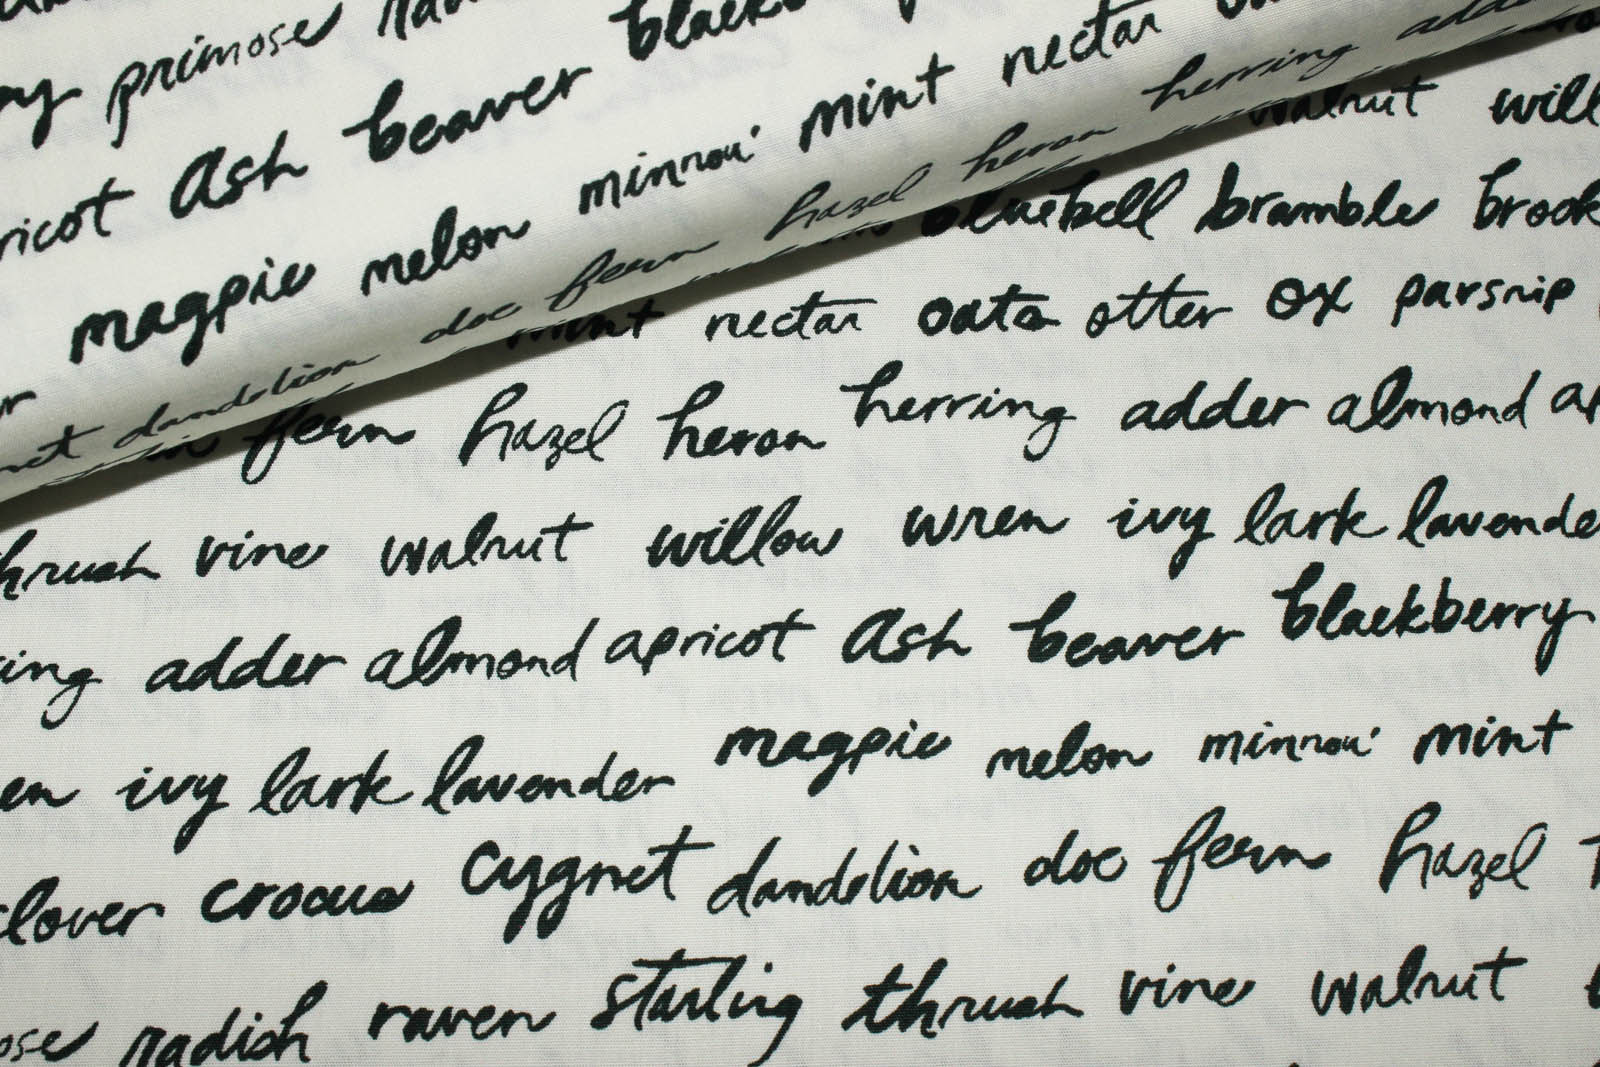 primose
apricot Ash beaver
magpie melon minnow mint nectar
dandelion doe fern hazel heron herring
walnut
bluebell bramble brook
mint nectar oats otter ox parsnip
fern hazel heron herring adder almond
thrush vine walnut willow wren ivy lark lavender
adder almond apricot Ash beaver blackberry
ivy lark lavender magpie melon minnow mint
clover crocus cygnet dandelion doe fern hazel
radish raven starling thrush vine walnut